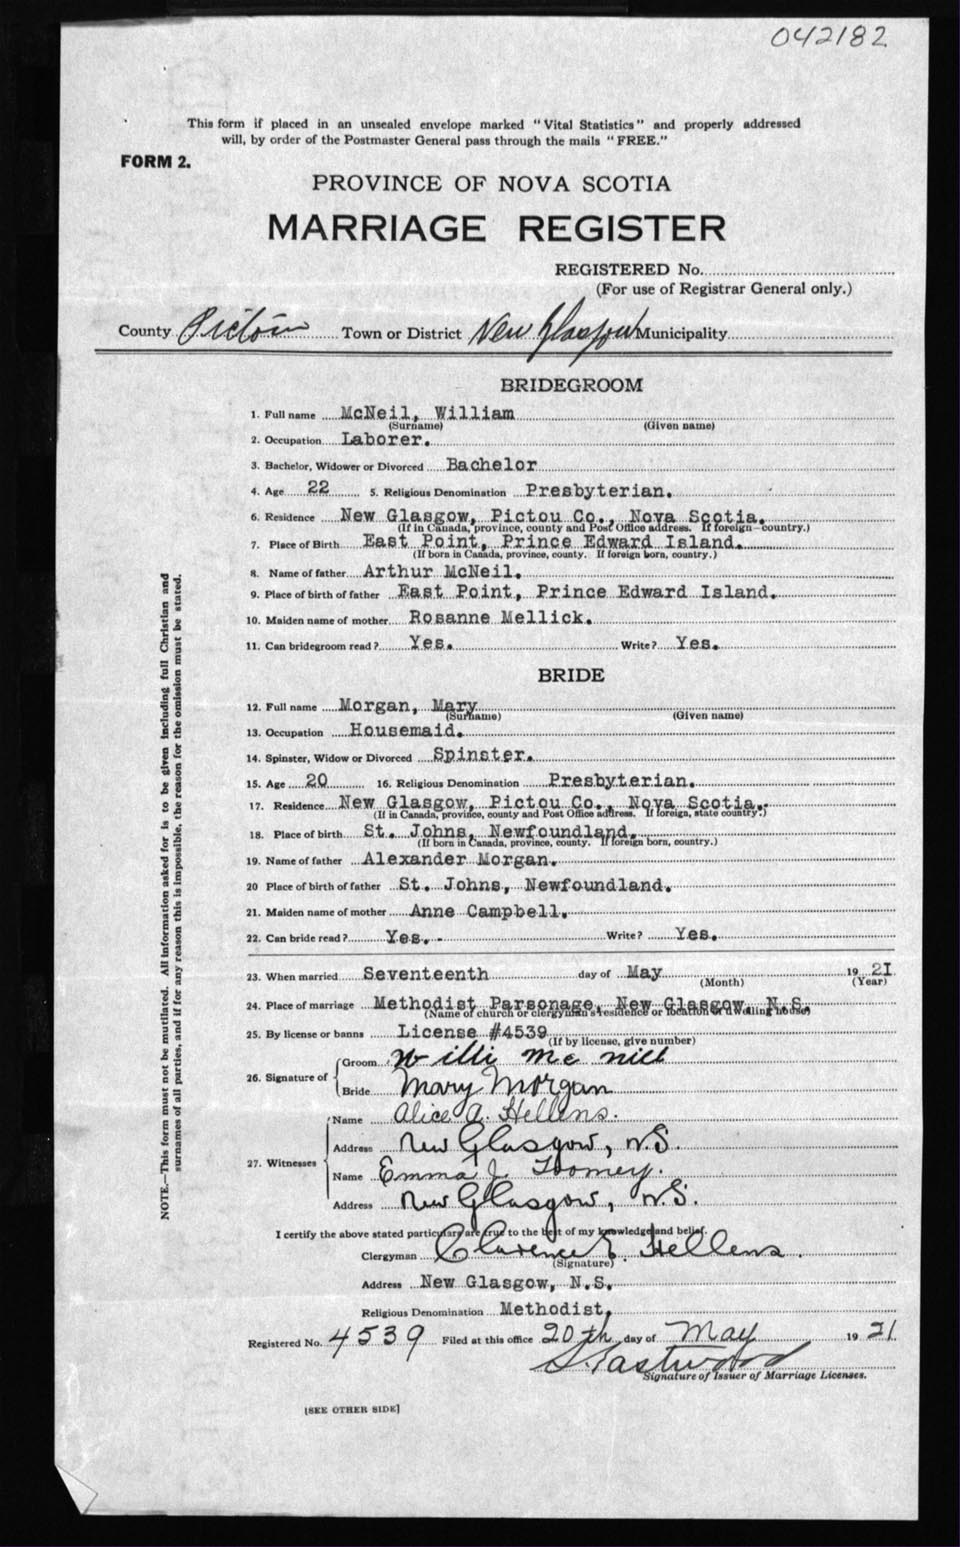 042182
This form if placed in an unsealed envelope marked "Vital Statistics" and properly addressed
will, by order of the Postmaster General pass through the mails "FREE."
FORM 2.
PROVINCE OF NOVA SCOTIA
MARRIAGE REGISTER
REGISTERED No.
(For use of Registrar General only.)
County Pictou Town or District New Glasgow Municipality
BRIDEGROOM
1. Full name McNeil, William
(Surname) (Given name)
2. Occupation Laborer.
3. Bachelor, Widower or Divorced Bachelor
4. Age 22 5. Religious Denomination Presbyterian.
6. Residence New Glasgow, Pictou Co., Nova Scotia.
(If in Canada, province, county and Post Office address. If foreign—country.)
7. Place of Birth East Point, Prince Edward Island.
(If born in Canada, province, county. If foreign born, country.)
8. Name of father Arthur McNeil.
9. Place of birth of father East Point, Prince Edward Island.
10. Maiden name of mother Rosanne Mellick.
11. Can bridegroom read? Yes. Write? Yes.
BRIDE
12. Full name Morgan, Mary
(Surname) (Given name)
13. Occupation Housemaid.
14. Spinster, Widow or Divorced Spinster.
15. Age 20 16. Religious Denomination Presbyterian.
17. Residence New Glasgow, Pictou Co., Nova Scotia.
(If in Canada, province, county and Post Office address. If foreign, state country.)
18. Place of birth St. Johns, Newfoundland.
(If born in Canada, province, county. If foreign born, country.)
19. Name of father Alexander Morgan.
20 Place of birth of father St. Johns, Newfoundland.
21. Maiden name of mother Anne Campbell.
22. Can bride read? Yes. - Write? Yes.
23. When married Seventeenth day of May 1921
(Month) (Year)
24. Place of marriage Methodist Parsonage, New Glasgow, N.S.
(Name of church or clergyman's residence or location of dwelling house)
25. By license or banns License #4539
(If by license, give number)
26. Signature of Groom Willi Mc nill
Bride Mary Morgan
27. Witnesses Name Alice A. Hellens.
Address New Glasgow, N.S.
Name Emma J. Toomey.
Address New Glasgow, N.S.
I certify the above stated particulars are true to the best of my knowledge and belief.
Clergyman Clarence E. Hellens.
(Signature)
Address New Glasgow, N.S.
Religious Denomination Methodist.
Registered No. 4539 Filed at this office 20th day of May 1921
Eastwood
Signature of Issuer of Marriage Licenses.
[SEE OTHER SIDE]
NOTE.—This form must not be mutilated. All information asked for is to be given including full Christian and
surnames of all parties, and if for any reason this is impossible, the reason for the omission must be stated.